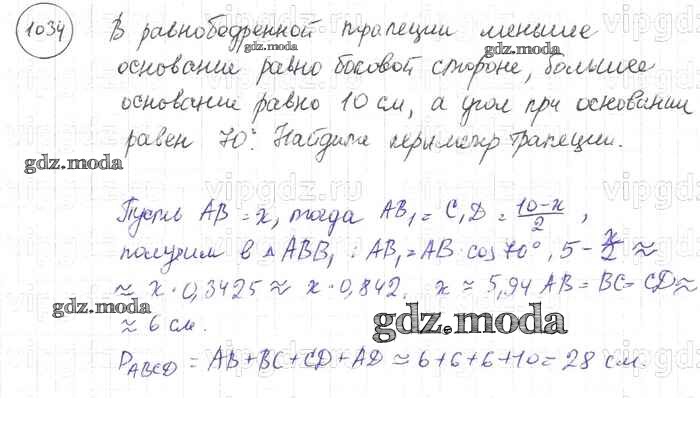 1034 В равнобедренной трапеции меньшее
основание равно боковой стороне, большее
основание равно 10 см, а угол при основании
равен 70°. Найдите периметр трапеции.
Пусть AB = x, тогда AB₁ = C₁D = (10-x)/2 ,
получим в △ABB₁ : AB₁ = AB · cos 70°, 5 - x/2 ≈
≈ x · 0,3425 ≈ x · 0,842. x ≈ 5,94 AB = BC = CD ≈
≈ 6 см.
P_ABCD = AB + BC + CD + AD ≈ 6+6+6+10 = 28 см.
gdz.moda
gdz.moda
gdz.moda
gdz.moda
gdz.moda
gdz.moda
vipgdz